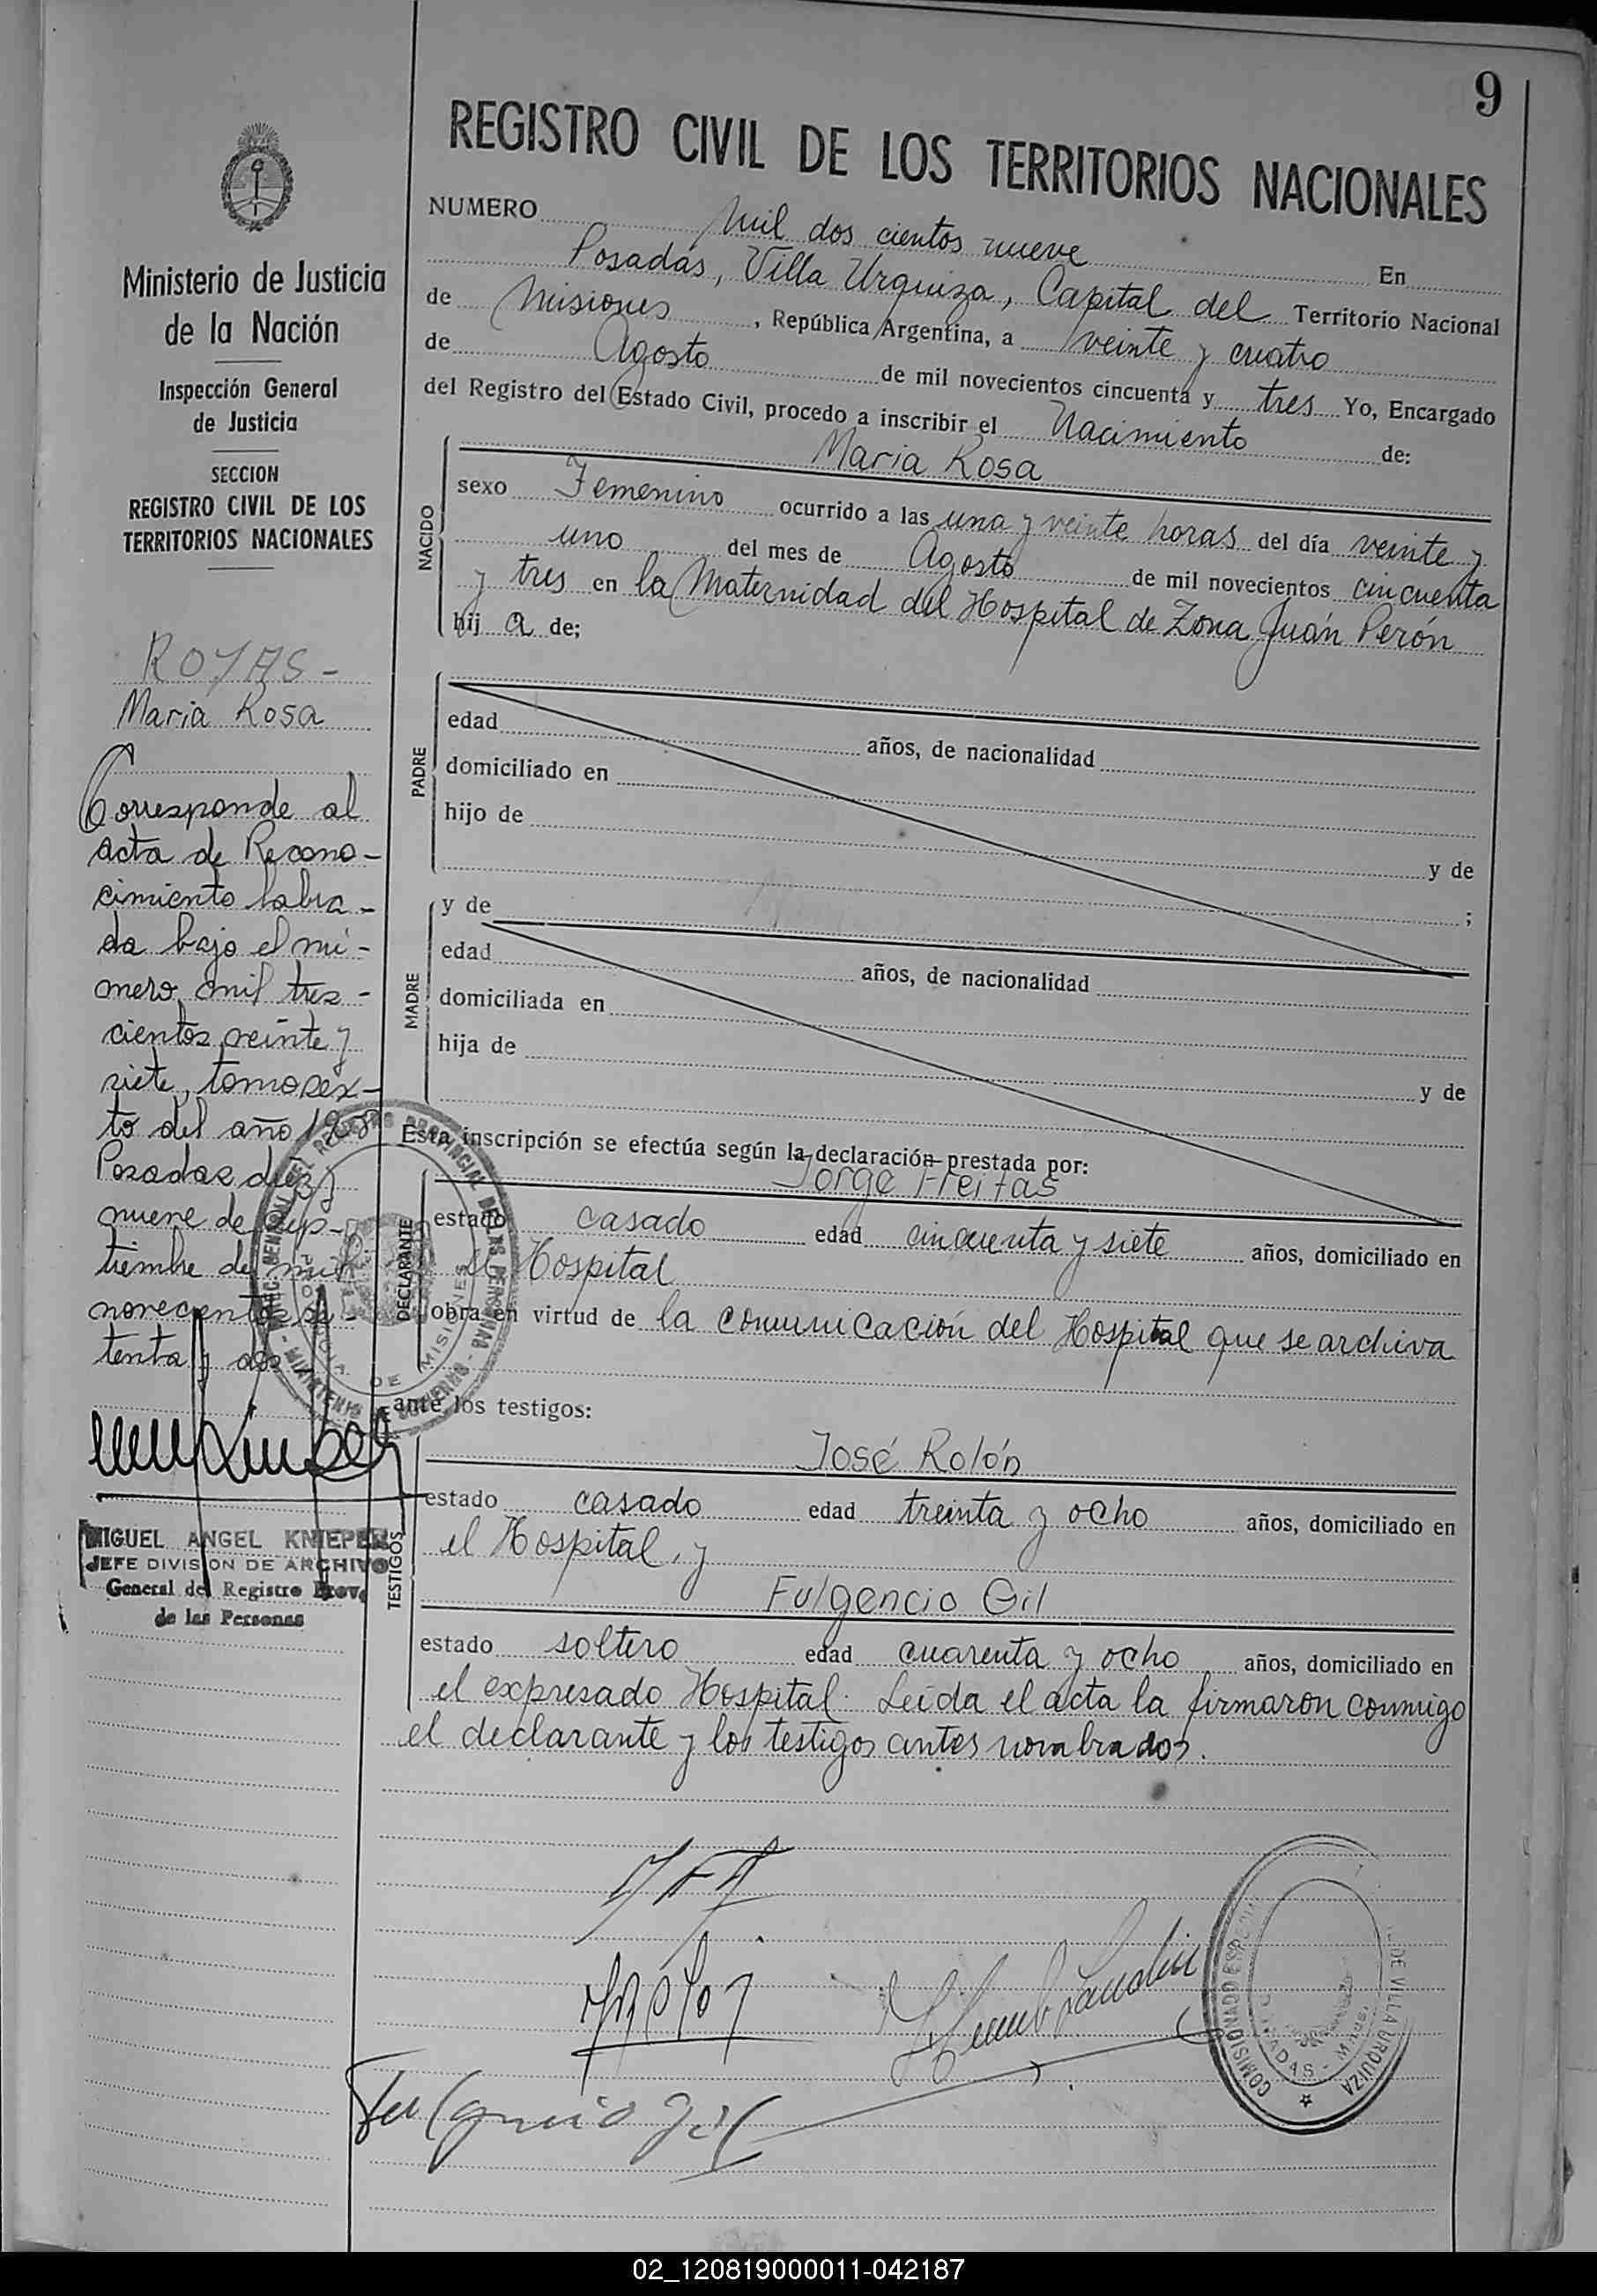 9
REGISTRO CIVIL DE LOS TERRITORIOS NACIONALES
Ministerio de Justicia
de la Nación
Inspección General
de Justicia
SECCION
REGISTRO CIVIL DE LOS
TERRITORIOS NACIONALES
ROJAS-
Maria Rosa
Corresponde al
acta de Recono-
cimiento labra-
da bajo el nú-
mero mil tres-
cientos veinte y
siete, tomo sex-
to del año
Posadas diez y
nueve de Sep-
tiembre de mil
novecientos se-
tenta y dos
MIGUEL ANGEL KNIEPER
JEFE DIVISION DE ARCHIVO
General del Registro Prov.
de las Personas
NUMERO Mil dos cientos nueve En
Posadas, Villa Urquiza, Capital del Territorio Nacional
de Misiones, República Argentina, a veinte y cuatro
de Agosto de mil novecientos cincuenta y tres Yo, Encargado
del Registro del Estado Civil, procedo a inscribir el Nacimiento de:
Maria Rosa
NACIDO
sexo Femenino ocurrido a las una y veinte horas del día veinte y
uno del mes de Agosto de mil novecientos cincuenta
y tres en la Maternidad del Hospital de Zona Juán Perón
hij a de;
PADRE
edad años, de nacionalidad
domiciliado en
hijo de
y de
;
MADRE
y de
edad años, de nacionalidad
domiciliada en
hija de
y de
Esta inscripción se efectúa según la declaración prestada por:
Jorge Freitas
DECLARANTE
estado casado edad cincuenta y siete años, domiciliado en
el Hospital
obra en virtud de la comunicación del Hospital que se archiva
ante los testigos:
José Rolón
TESTIGOS
estado casado edad treinta y ocho años, domiciliado en
el Hospital, y
Fulgencio Gil
estado soltero edad cuarenta y ocho años, domiciliado en
el expresado Hospital. Leída el acta la firmaron conmigo
el declarante y los testigos antes nombrados.
Fulgencio Gil
COMISIONADO DE VILLA URQUIZA
02_120819000011-042187